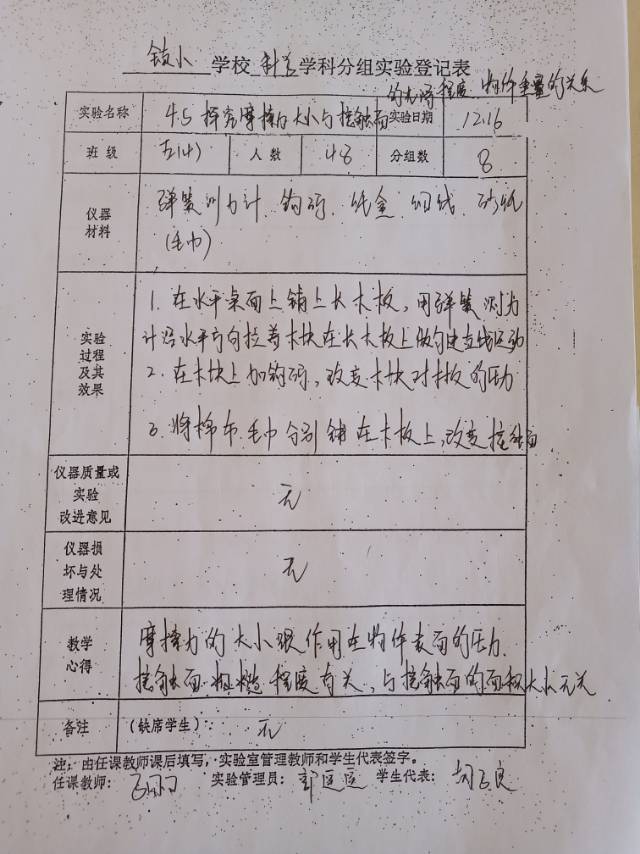 学校 科学 学科分组实验登记表
的光滑程度、物体重量的关系
实验名称 4.5 探究摩擦力大小与接触面 实验日期 12.16
班级 五(4) 人数 48 分组数 8
仪器材料 弹簧测力计 钩码 纸盒 细线 砂纸
(毛巾)
实验过程及其效果
1. 在水平桌面上铺上长木板，用弹簧测力
计沿水平方向拉着木块在长木板上做匀速直线运动
2. 在木块上加钩码，改变木块对木板的压力
3. 将棉布、毛巾分别铺在木板上，改变接触面
仪器质量或实验改进意见 无
仪器损坏与处理情况 无
教学心得 摩擦力的大小跟作用在物体表面的压力、
接触面粗糙程度有关，与接触面的面积大小无关
备注 (缺席学生)： 无
注：由任课教师课后填写，实验室管理教师和学生代表签字。
任课教师： 实验管理员： 学生代表：